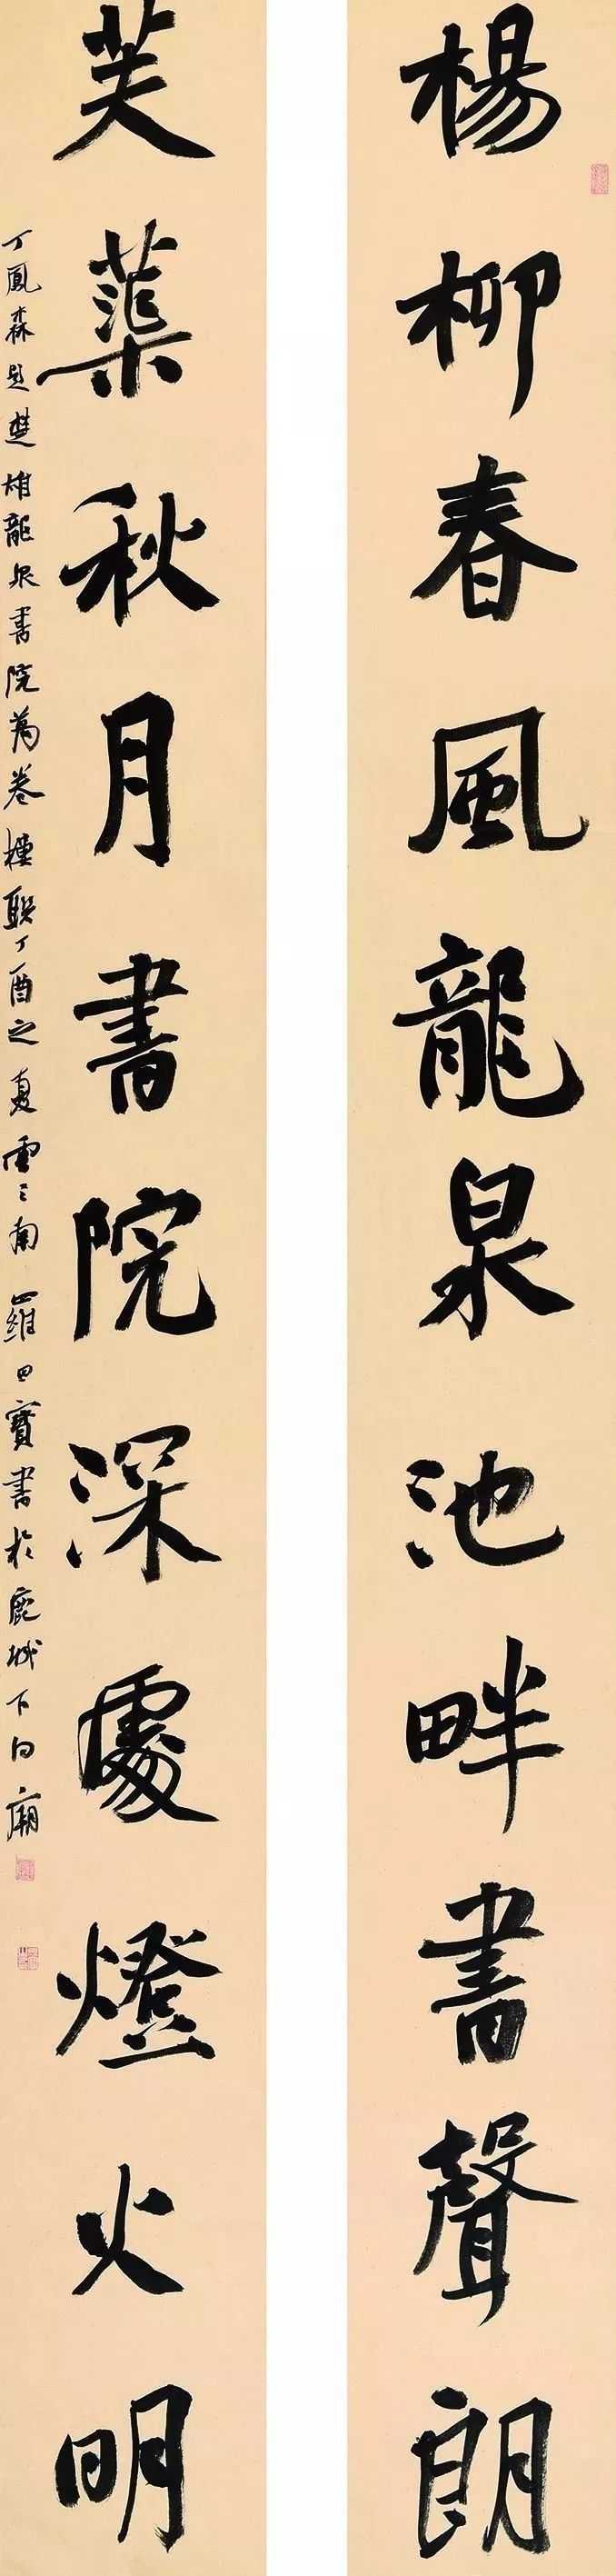 楊柳春風龍泉池畔書聲朗
芙蕖秋月書院深處燈火明
丁鳳森題楚雄龍泉書院萬卷樓聯丁酉之夏雲南羅田寶書於鹿城下向廟